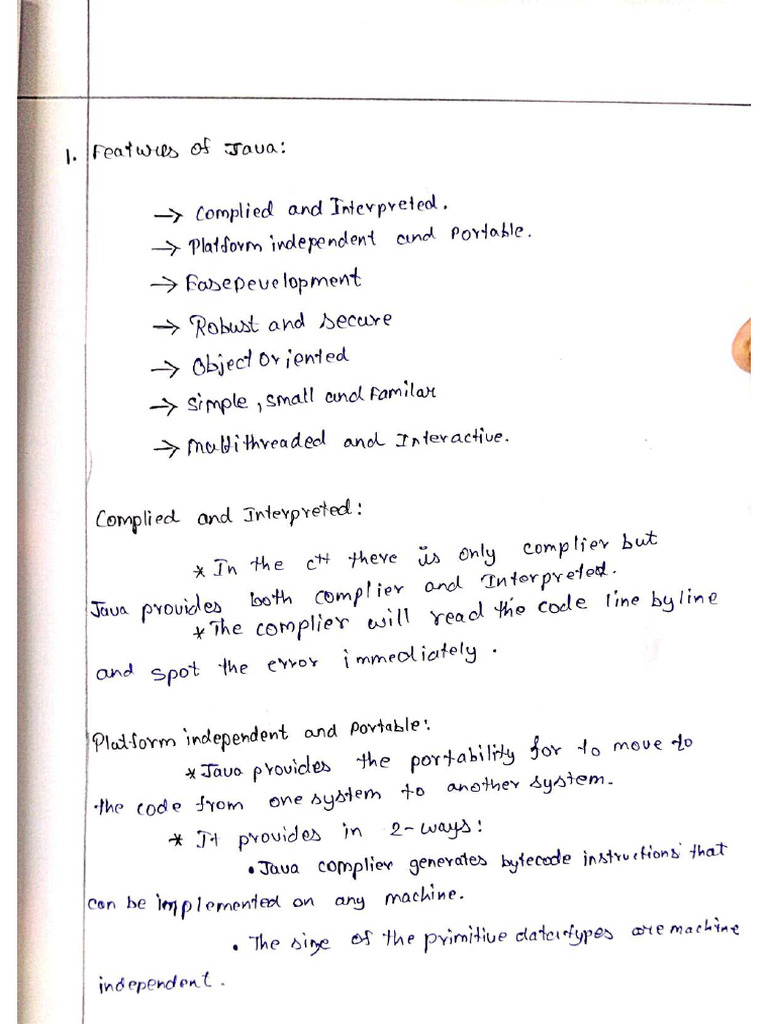 1. Features of Java:
→ Complied and Interpreted.
→ Platform independent and Portable.
→ EaseDevelopment
→ Robust and secure
→ Object Oriented
→ Simple, small and Familar
→ Multithreaded and Interactive.
Complied and Interpreted:
* In the c++ there is only complier but
Java provides both complier and Interpreted.
* The complier will read the code line by line
and spot the error immediately.
Platform independent and Portable:
* Java provides the portability for to move to
the code from one system to another system.
* It provides in 2-ways:
• Java complier generates bytecode instructions that
can be implemented on any machine.
• The size of the primitive datatypes are machine
independent.